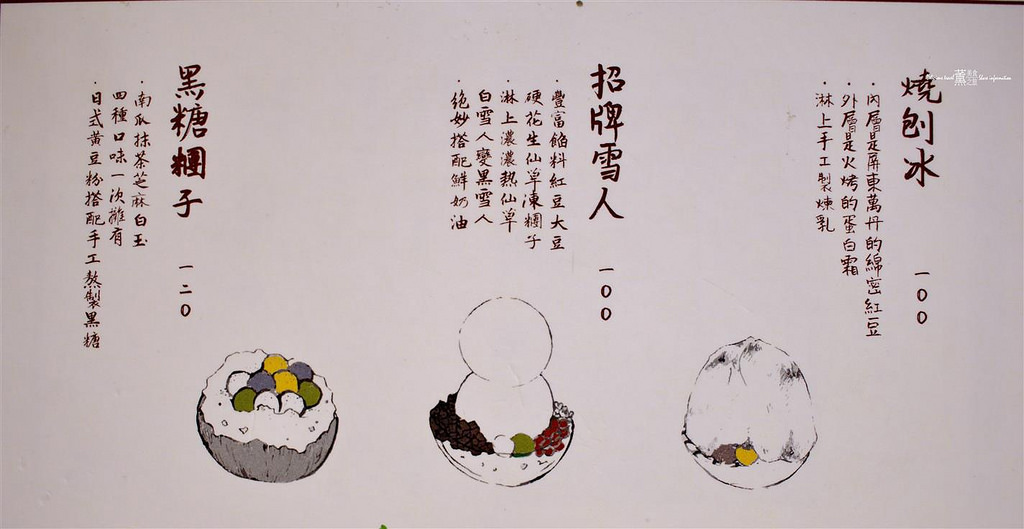 燒刨冰
一００
·內層是屏東萬丹的綿密紅豆
·外層是火烤的蛋白霜
·淋上手工製煉乳
招牌雪人
一００
·豐富餡料紅豆大豆
硬花生仙草凍糰子
·淋上濃濃熱仙草
白雪人變黑雪人
·絕妙搭配鮮奶油
黑糖糰子
一二０
·南瓜抹茶芝麻白玉
四種口味一次擁有
·日式黃豆粉搭配手工熬製黑糖
薰
美食
之旅
Share information